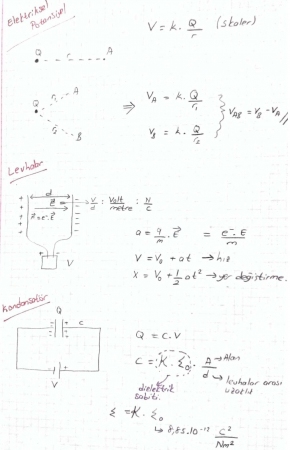 Elektriksel Potansiyel
V = k . Q/r (skaler)
Q r A
Q r₁ A
r₂ B
⇒ V_A = k . Q/r₁
V_B = k . Q/r₂
V_AB = V_B - V_A //
Levhalar
d
E = V/d : Volt/metre : N/C
F = e⁻. E
V
a = q/m . E = e⁻. E/m
V = V₀ + at → hız
X = V₀ + 1/2 at² → yer değiştirme.
Kondansatör
Q
C
V
Q = C.V
C = K . Ɛ₀ . A/d → Alan
→ levhalar arası uzaklık
dielektrik sabiti.
Ɛ = K . Ɛ₀
↳ 8,85.10⁻¹² C²/Nm²